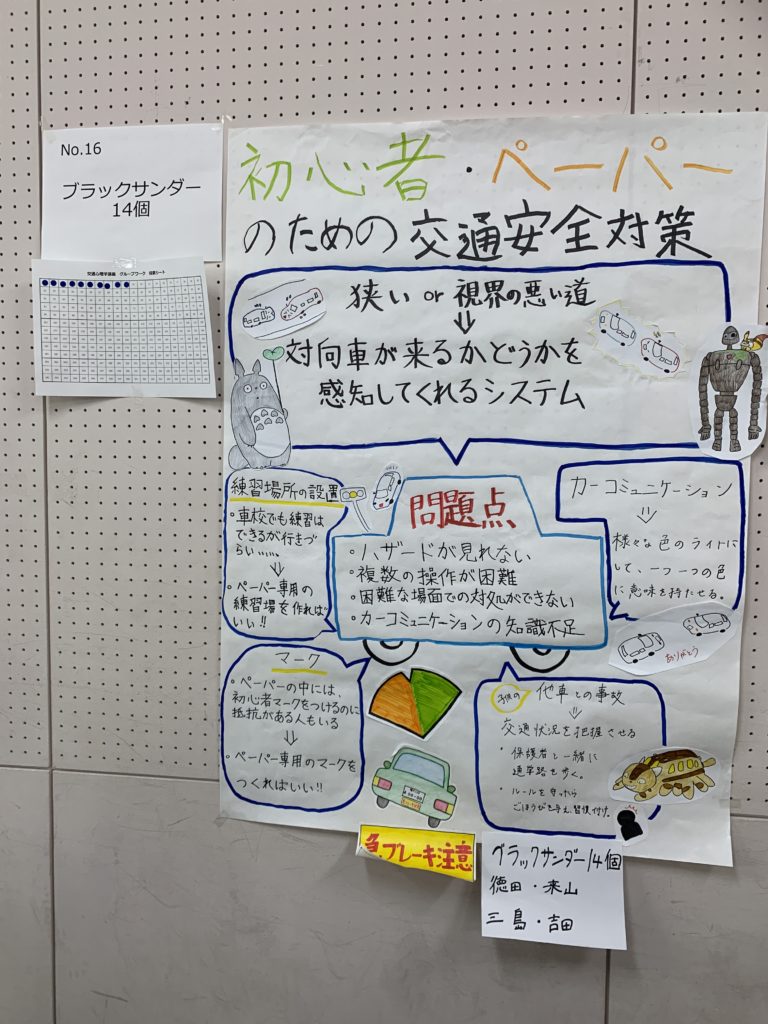 No.16
ブラックサンダー
14個
交通心理学演習 グループワーク 投票シート
初心者・ペーパー
のための交通安全対策
狭い or 視界の悪い道
⇓
対向車が来るかどうかを
感知してくれるシステム
練習場所の設置
・車校でも練習は
できるが行きづ
らい……
↓
・ペーパー専用の
練習場を作れば
いい!!
問題点
・ハザードが見れない
・複数の操作が困難
・困難な場面での対処ができない
・カーコミュニケーションの知識不足
カーコミュニケーション
⇓
様々な色のライトに
して、一つ一つの色
に意味を持たせる。
ありがとう
マーク
・ペーパーの中には、
初心者マークをつけるのに
抵抗がある人もいる
↓
・ペーパー専用のマークを
つくればいい!!
子供の 他車との事故
⇓
交通状況を把握させる
・保護者と一緒に
通学路を歩く。
・ルールを守ったら
ごほうびを与え、習慣付け。
急ブレーキ注意
ブラックサンダー14個
徳田・来山
三島・吉田